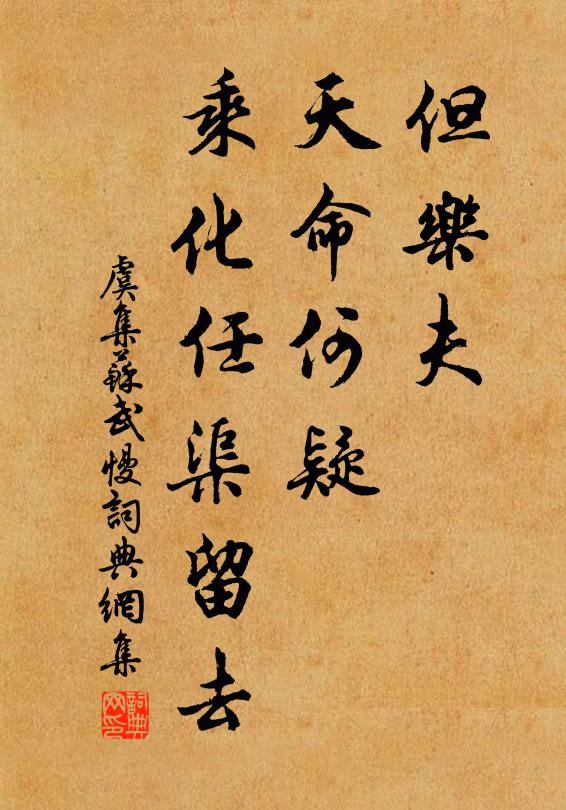 但樂夫
天命何疑
乘化任渠留去
虞集蘇武慢詞典網集
詞典网印